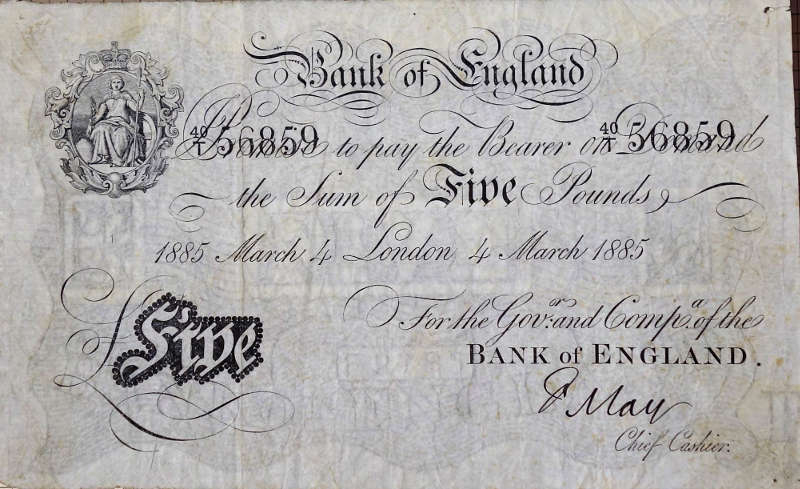 Bank of England
40/T 56859 40/T 56859
Promise to pay the Bearer on Demand
the Sum of Five Pounds
1885 March 4 London 4 March 1885
For the Govor. and Compa. of the
Five
BANK of ENGLAND.
F May
Chief Cashier.